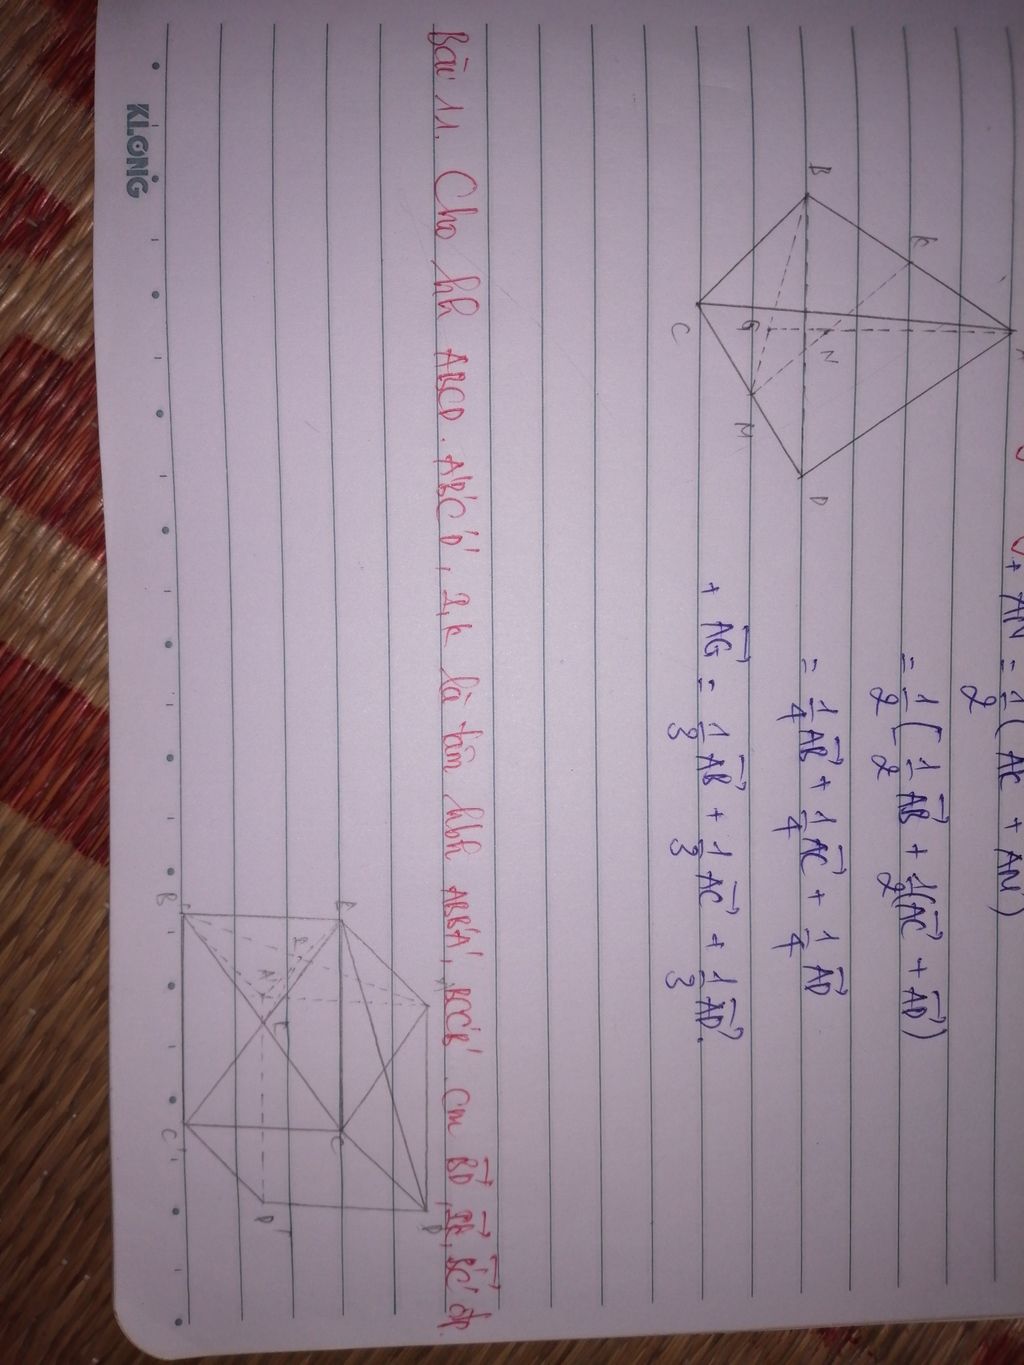 + AN = 1/2 (AC + AM)
= 1/2 [1/2 AB + 1/2 (AC + AD)
= 1/4 AB + 1/4 AC + 1/4 AD
+ AG = 1/3 AB + 1/3 AC + 1/3 AD.
A
K
B
N
G
C
M
D
Bài 11. Cho hh ABCD.A'B'C'D', I,K là tâm hbh ABB'A', BCC'B' cm BD, IK, B'C' đp.
A
D
B
C
I
K
A'
D'
B'
C'
KLONG